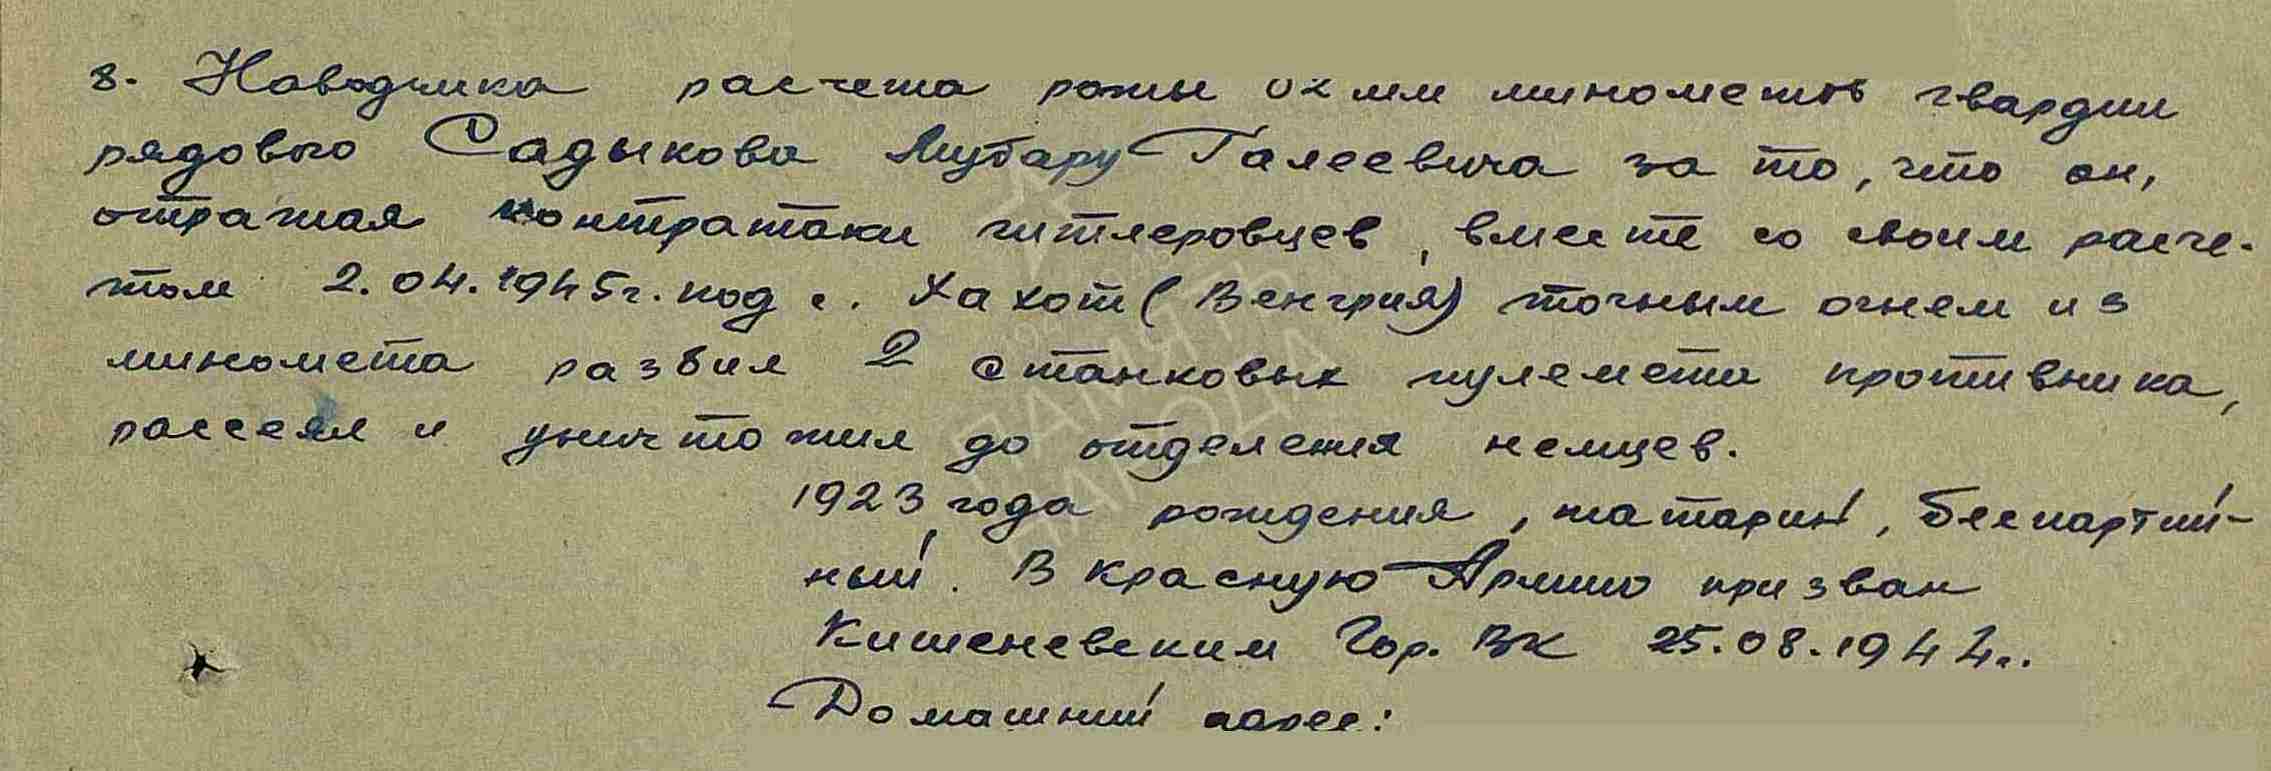 8. Наводчика расчета роты 82 мм минометов гвардии
рядового Садыкова Мубару Галеевича за то, что он,
отражая контратаки гитлеровцев, вместе со своим расче-
том 2.04.1945г. под с. Хахот (Венгрия) точным огнем из
миномета разбил 2 станковых пулемета противника,
рассеял и уничтожил до отделения немцев.
1923 года рождения, татарин, беспартий-
ный. В красную Армию призван
Кишеневским Гор. ВК 25.08.1944г.
Домашний адрес:
ПАМЯТЬ
НАРОДА